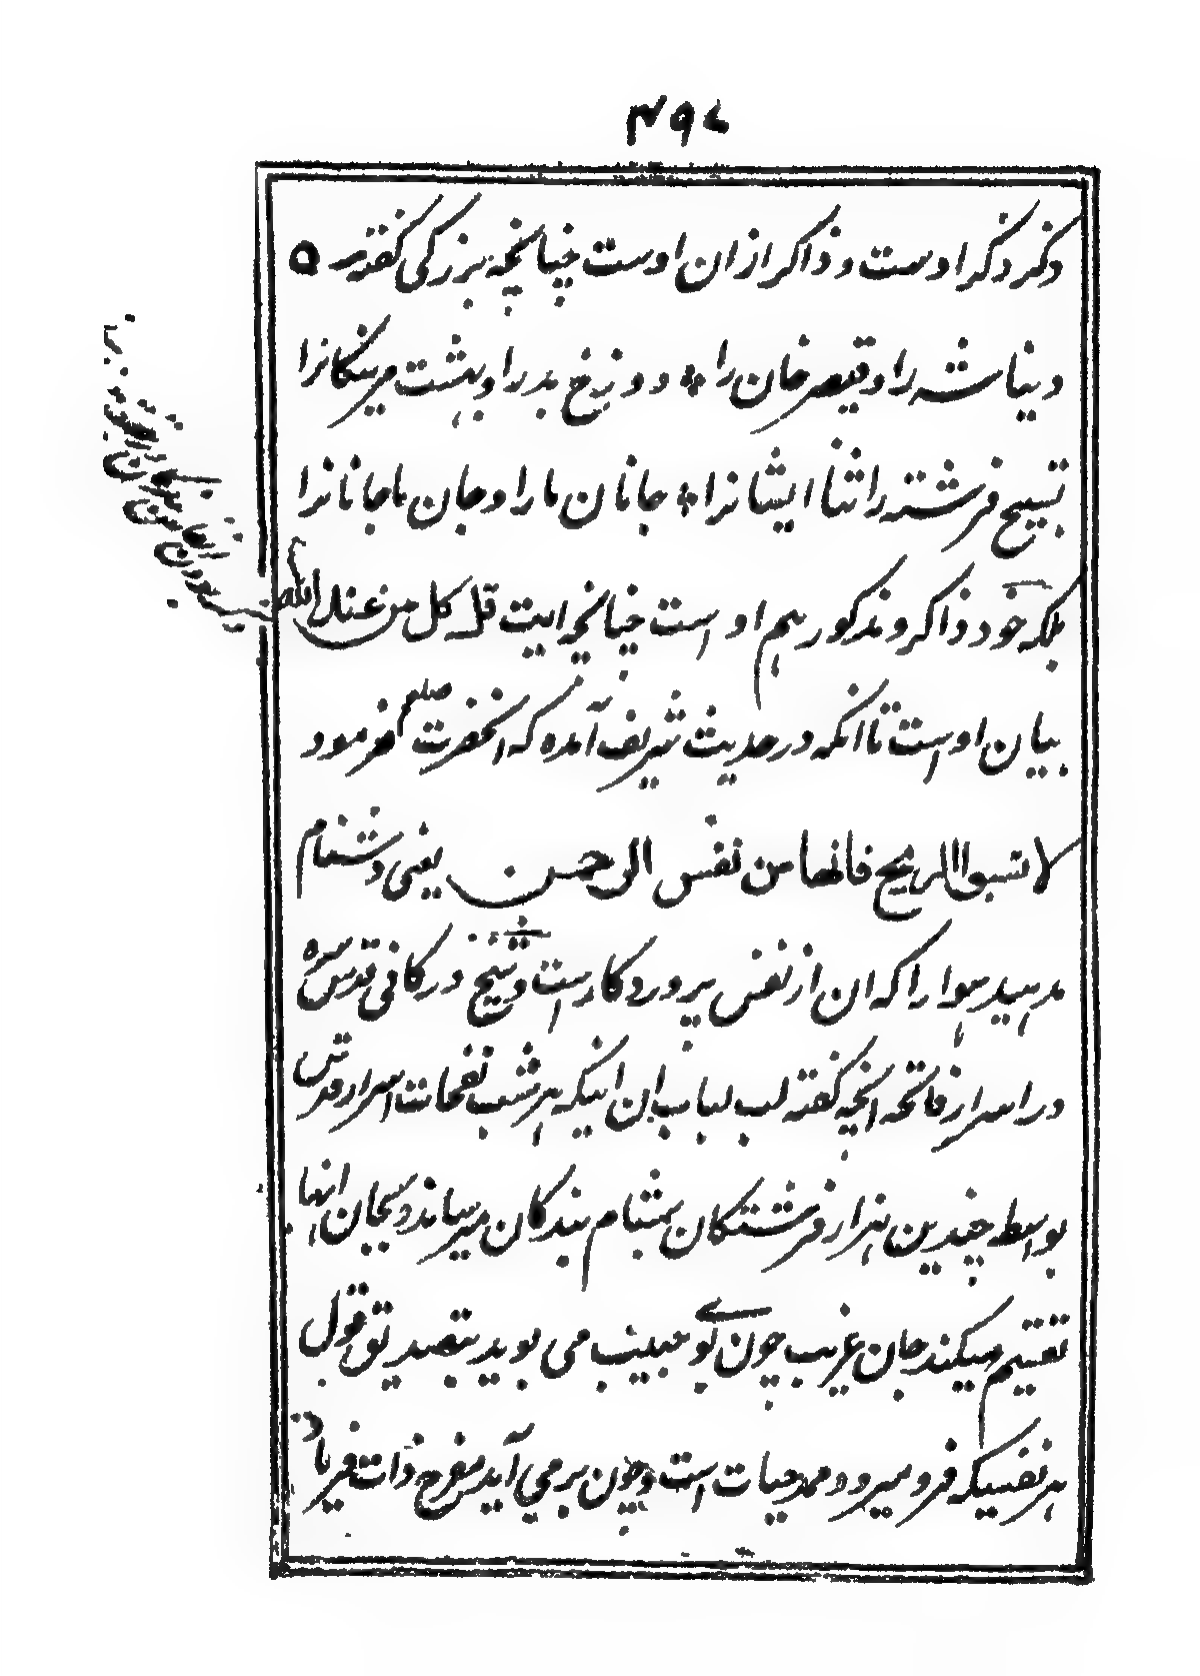 ۴۹۸
دیگر ذکر اوست و ذاکر ازان اوست چنانچه بزرگی گفته ۵
دنیا شه را و قیصر خان را * دوزخ بد را و بهشت مر نیکانرا
تسبیح فرشته را ثنا ایشانرا * جانان ما را و جان ما جانانرا
بلکه خود ذاکر و مذکور هم اوست چنانچه ایت قل کل من عند الله
بیان اوست تا انکه در حدیث شریف آمده که انحضرت صلعم فرمود
لا تسبوا الریح فانها من نفس الرحمن یعنی دشنام
مدهید هوا را که ان از نفس پروردگار است و شیخ در کافی قدس سره
در اسرار فاتحه انچه گفته لب لباب ان اینکه هر شب نفحات اسرار قدس
بواسطه چندین هزار فرشتگان بمشام بندگان میرساند و بجان انها
تقسیم میکند جان غریب چون بوی حبیب می بوید بتصدیق قول
هر نفسیکه فرو میرود ممد حیات است و چون بر می آید مفرح ذات فریاد